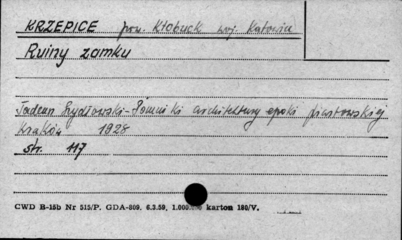 KRZEPICE pow. Kłobuck woj. Katowice
Ruiny zamku
Tadeusz Szydłowski - Pomniki architektury epoki piastowskiej
Kraków 1928
str. 117
CWD B-15b Nr 515/P. GDA-809. 6.3.59. 1.000. karton 180/V.